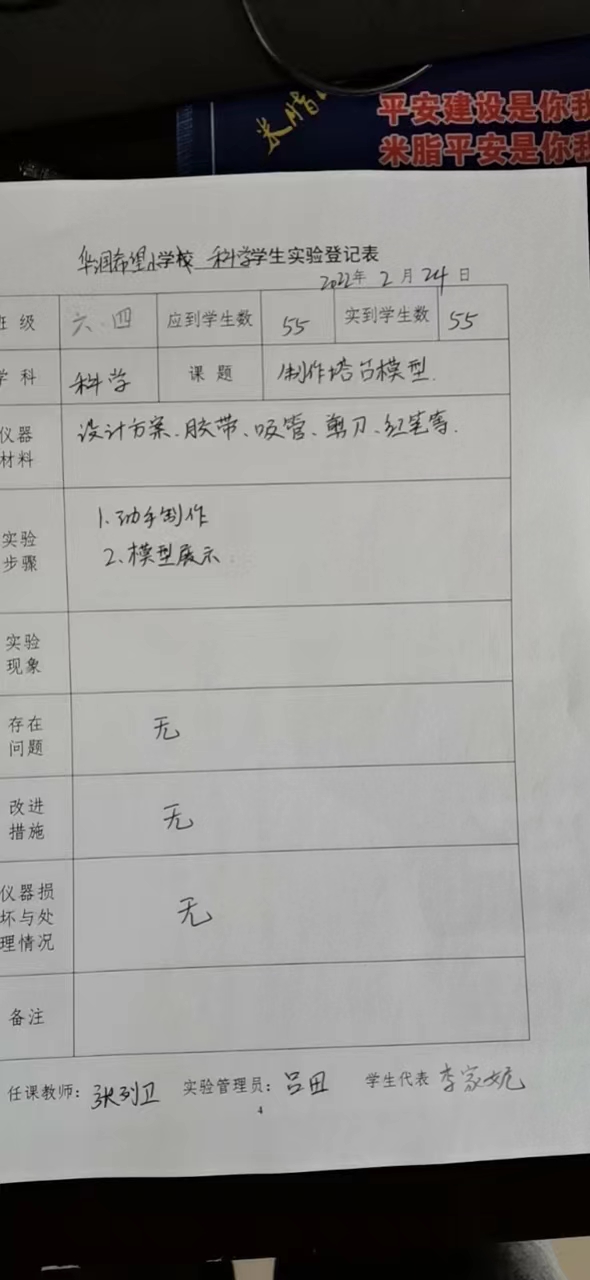 米脂
平安建设是你我
米脂平安是你我
华润希望小学校 科学学生实验登记表
2022年 2 月 24 日
班 级 六.四 应到学生数 55 实到学生数 55
学 科 科学 课 题 制作塔台模型.
仪器 设计方案、胶带、吸管、剪刀、红笔等.
材料
1.动手制作
实验
2.模型展示
步骤
实验
现象
存在 无
问题
改进 无
措施
仪器损
坏与处 无
理情况
备注
任课教师: 张列卫 实验管理员: 吕田 学生代表 李家妮
4